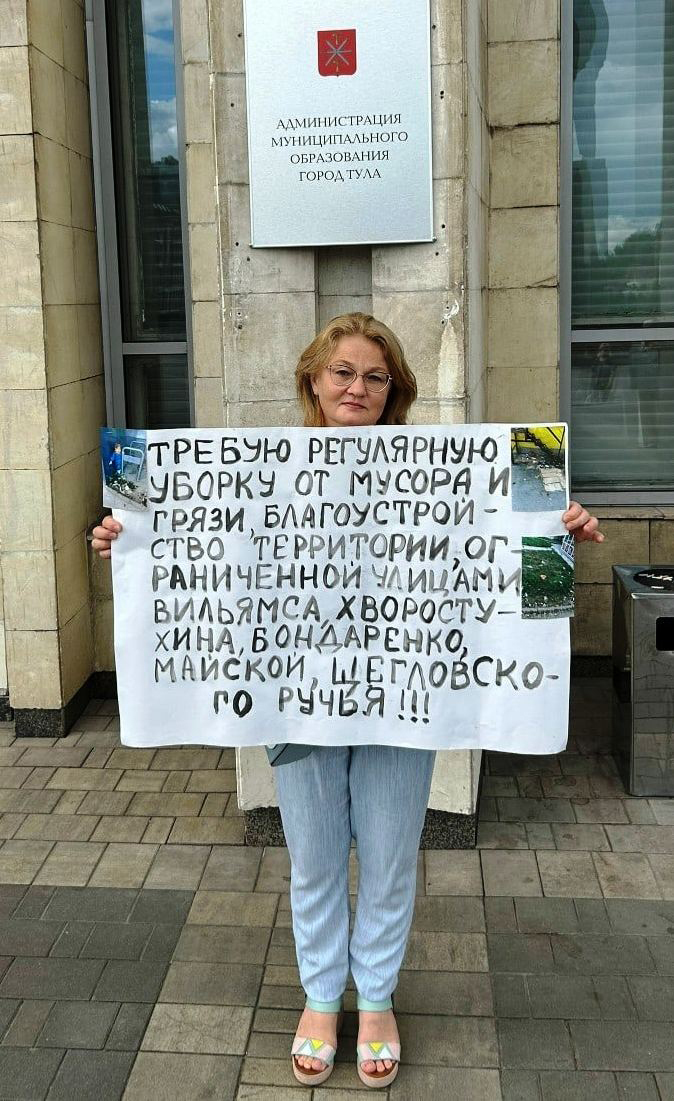 АДМИНИСТРАЦИЯ
МУНИЦИПАЛЬНОГО
ОБРАЗОВАНИЯ
ГОРОД ТУЛА
ТРЕБУЮ РЕГУЛЯРНУЮ
УБОРКУ ОТ МУСОРА И
ГРЯЗИ, БЛАГОУСТРОЙ-
СТВО ТЕРРИТОРИИ, ОГ-
РАНИЧЕННОЙ УЛИЦАМИ
ВИЛЬЯМСА, ХВОРОСТУ-
ХИНА, БОНДАРЕНКО,
МАЙСКОЙ, ЩЕГЛОВСКО-
ГО РУЧЬЯ!!!